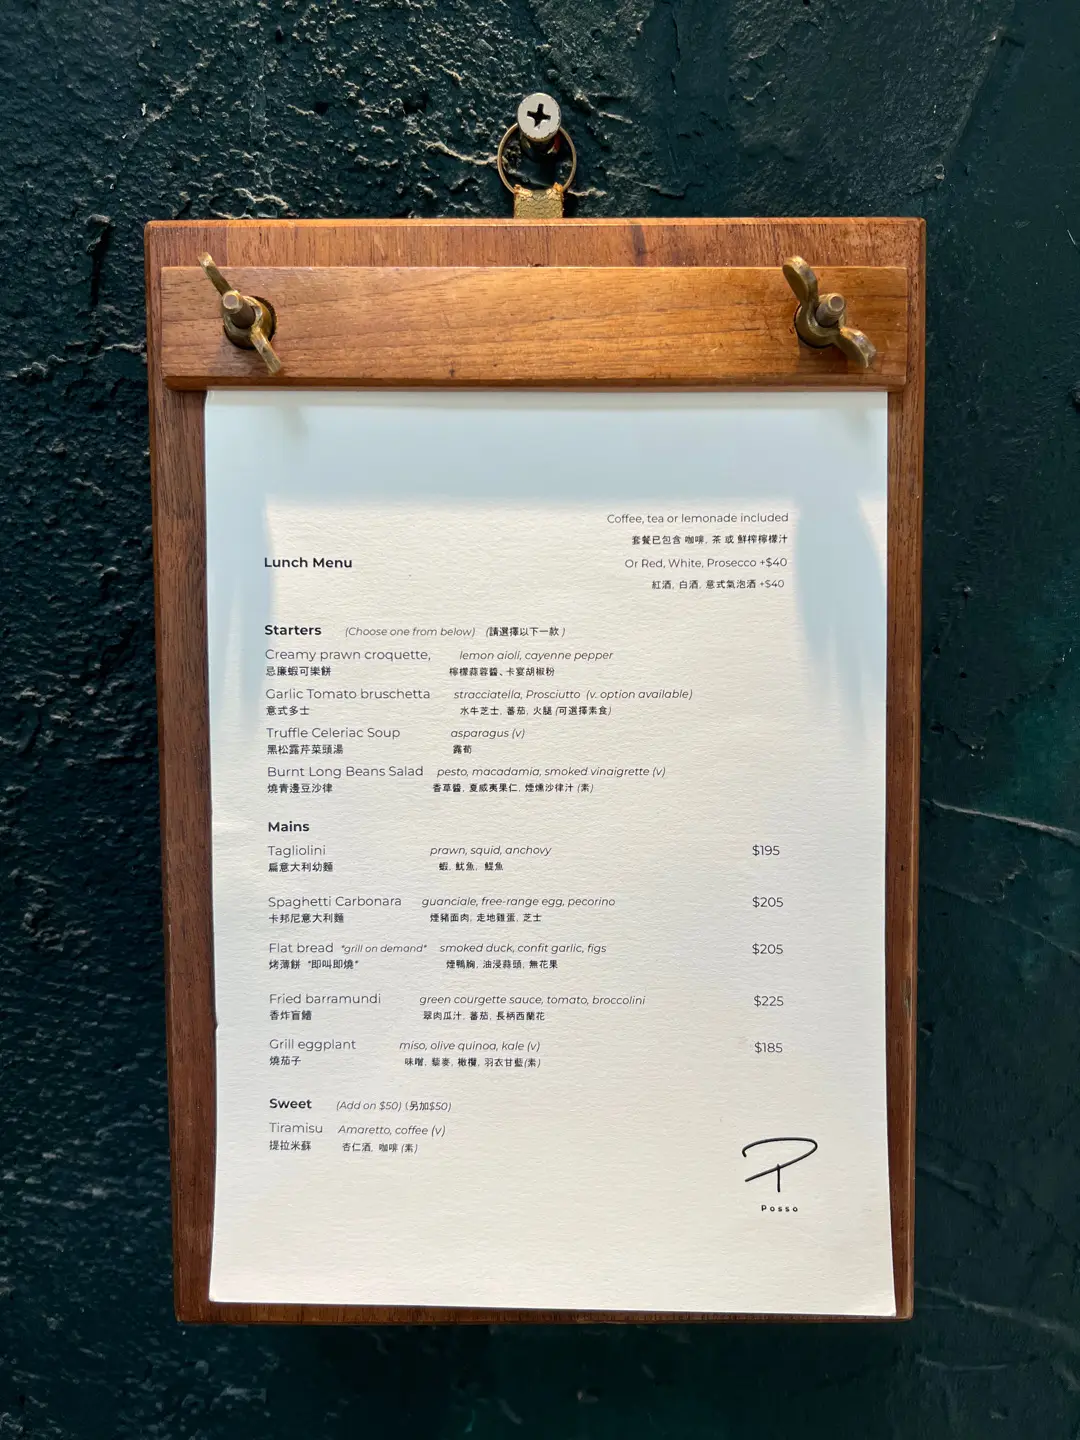 Coffee, tea or lemonade included
套餐已包含 咖啡, 茶 或 鮮榨檸檬汁
Lunch Menu
Or Red, White, Prosecco +$40
紅酒, 白酒, 意式氣泡酒 +$40
Starters (Choose one from below) (請選擇以下一款 )
Creamy prawn croquette, lemon aioli, cayenne pepper
忌廉蝦可樂餅 檸檬蒜蓉醬、卡宴胡椒粉
Garlic Tomato bruschetta stracciatella, Prosciutto (v. option available)
意式多士 水牛芝士, 蕃茄, 火腿 (可選擇素食)
Truffle Celeriac Soup asparagus (v)
黑松露芹菜頭湯 露荀
Burnt Long Beans Salad pesto, macadamia, smoked vinaigrette (v)
燒青邊豆沙律 香草醬, 夏威夷果仁, 煙燻沙律汁 (素)
Mains
Tagliolini prawn, squid, anchovy $195
扁意大利幼麵 蝦, 魷魚, 鯷魚
Spaghetti Carbonara guanciale, free-range egg, pecorino $205
卡邦尼意大利麵 煙豬面肉, 走地雞蛋, 芝士
Flat bread *grill on demand* smoked duck, confit garlic, figs $205
烤薄餅 *即叫即燒* 煙鴨胸, 油浸蒜頭, 無花果
Fried barramundi green courgette sauce, tomato, broccolini $225
香炸盲鰽 翠肉瓜汁, 蕃茄, 長柄西蘭花
Grill eggplant miso, olive quinoa, kale (v) $185
燒茄子 味噌, 藜麥, 橄欖, 羽衣甘藍(素)
Sweet (Add on $50) (另加$50)
Tiramisu Amaretto, coffee (v)
提拉米蘇 杏仁酒, 咖啡 (素)
Posso